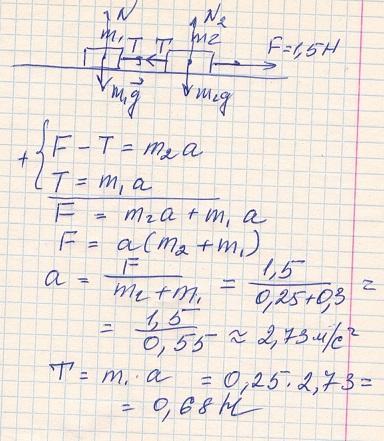 N N₂
m₁ T T m₂ F=1,5Н
m₁g m₂g
+ { F - T = m₂a
T = m₁a
F = m₂a + m₁a
F = a(m₂ + m₁)
a = F/(m₂+m₁) = 1,5/(0,25+0,3) =
= 1,5/0,55 ≈ 2,73 м/с²
T = m₁·a = 0,25·2,73 =
= 0,68 Н